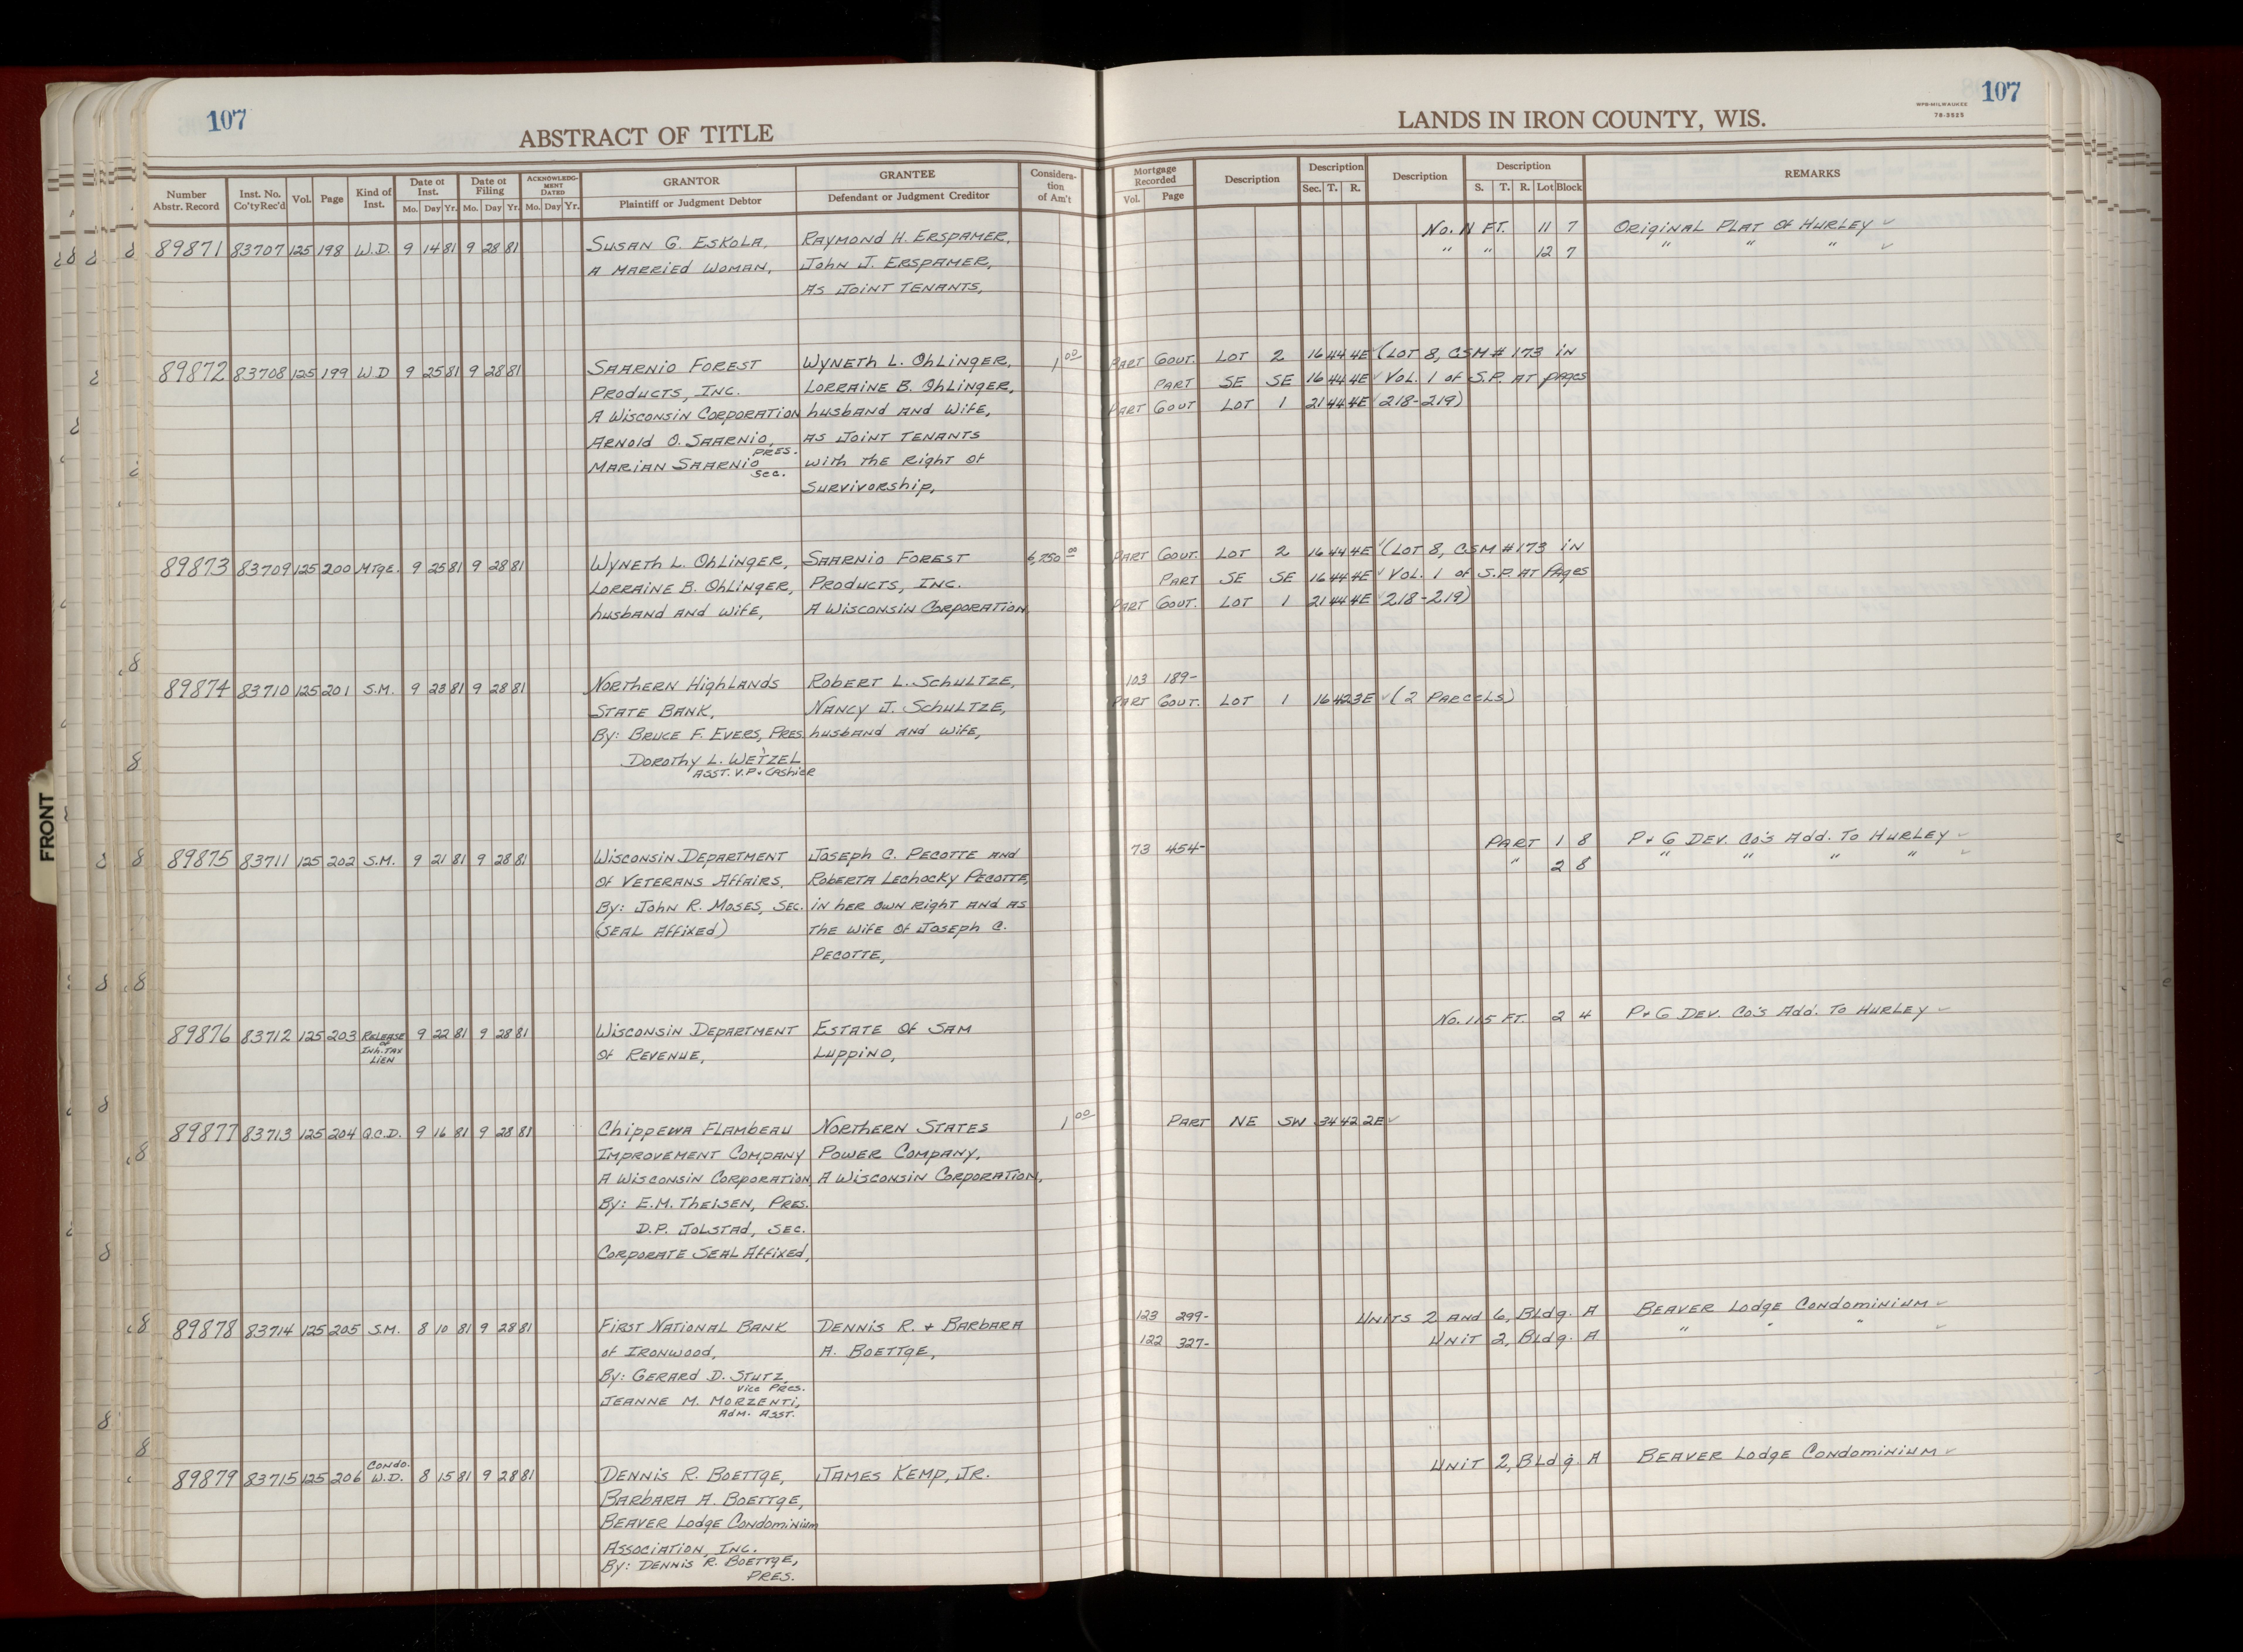 107
ABSTRACT OF TITLE
LANDS IN IRON COUNTY, WIS.
WPB-MILWAUKEE
78-3525
107
Number Abstr. Record | Inst. No. Co'ty Rec'd | Vol. | Page | Kind of Inst. | Date of Inst. Mo. Day Yr. | Date of Filing Mo. Day Yr. | ACKNOWLEDG-MENT DATED Mo. Day Yr. | GRANTOR Plaintiff or Judgment Debtor | GRANTEE Defendant or Judgment Creditor | Considera-tion of Am't | Mortgage Recorded Vol. Page | Description | Description Sec. T. R. | Description | Description S. T. R. Lot Block | REMARKS
89871 83707 125 198 W.D. 9 14 81 9 28 81 Susan G. Eskola, Raymond H. Erspamer, No. 11 FT. 11 7 Original Plat of Hurley ✓
A Married Woman, John J. Erspamer, " " 12 7 " " " ✓
As Joint Tenants,
89872 83708 125 199 WD 9 25 81 9 28 81 Saarnio Forest Wyneth L. Ohlinger, 1 00 Part Gout. Lot 2 16 44 4E ✓ (Lot 8, CSM # 173 in
Products, Inc. Lorraine B. Ohlinger, Part SE SE 16 44 4E ✓ Vol. 1 of S.P. at pages
A Wisconsin Corporation husband and wife, Part Gout Lot 1 21 44 4E ✓ 218-219)
Arnold O. Saarnio, Pres. as Joint Tenants
Marian Saarnio Sec. with the right of
Survivorship,
89873 83709 125 200 Mtge. 9 25 81 9 28 81 Wyneth L. Ohlinger, Saarnio Forest 6,750 00 Part Gout. Lot 2 16 44 4E ✓ (Lot 8, CSM # 173 in
Lorraine B. Ohlinger, Products, Inc. Part SE SE 16 44 4E ✓ Vol. 1 of S.P. at Pages
husband and wife, A Wisconsin Corporation Part Gout. Lot 1 21 44 4E ✓ 218-219)
89874 83710 125 201 S.M. 9 23 81 9 28 81 Northern Highlands Robert L. Schultze, 103 189-
State Bank, Nancy J. Schultze, Part Gout. Lot 1 16 42 3E ✓ (2 Parcels)
By: Bruce F. Evers, Pres. husband and wife,
Dorothy L. Wetzel
Asst. V.P. & Cashier
89875 83711 125 202 S.M. 9 21 81 9 28 81 Wisconsin Department Joseph C. Pecotte and 73 454- Part 1 8 P & G Dev. Co's Add. To Hurley ✓
of Veterans Affairs, Roberta Lechocky Pecotte, " 2 8 " " " " ✓
By: John R. Moses, Sec. in her own right and as
(Seal Affixed) the wife of Joseph C.
Pecotte,
89876 83712 125 203 Release of Inh. Tax Lien 9 22 81 9 28 81 Wisconsin Department Estate of Sam No. 115 FT. 2 4 P & G Dev. Co's Add. To Hurley ✓
of Revenue, Luppino,
89877 83713 125 204 Q.C.D. 9 16 81 9 28 81 Chippewa Flambeau Northern States 1 00 Part NE SW 34 42 2E ✓
Improvement Company Power Company,
A Wisconsin Corporation, A Wisconsin Corporation,
By: E.M. Theisen, Pres.
D.P. Jolstad, Sec.
Corporate Seal Affixed,
89878 83714 125 205 S.M. 8 10 81 9 28 81 First National Bank Dennis R. & Barbara 123 299- Units 2 and 6, Bldg. A Beaver Lodge Condominium ✓
of Ironwood, A. Boettge, 122 327- Unit 2, Bldg. A " " " ✓
By: Gerard D. Stutz,
Vice Pres.
Jeanne M. Morzenti,
Adm. Asst.
89879 83715 125 206 Condo. W.D. 8 15 81 9 28 81 Dennis R. Boettge, James Kemp, Jr. Unit 2, Bldg. A Beaver Lodge Condominium ✓
Barbara A. Boettge,
Beaver Lodge Condominium
Association, Inc.
By: Dennis R. Boettge,
Pres.
FRONT